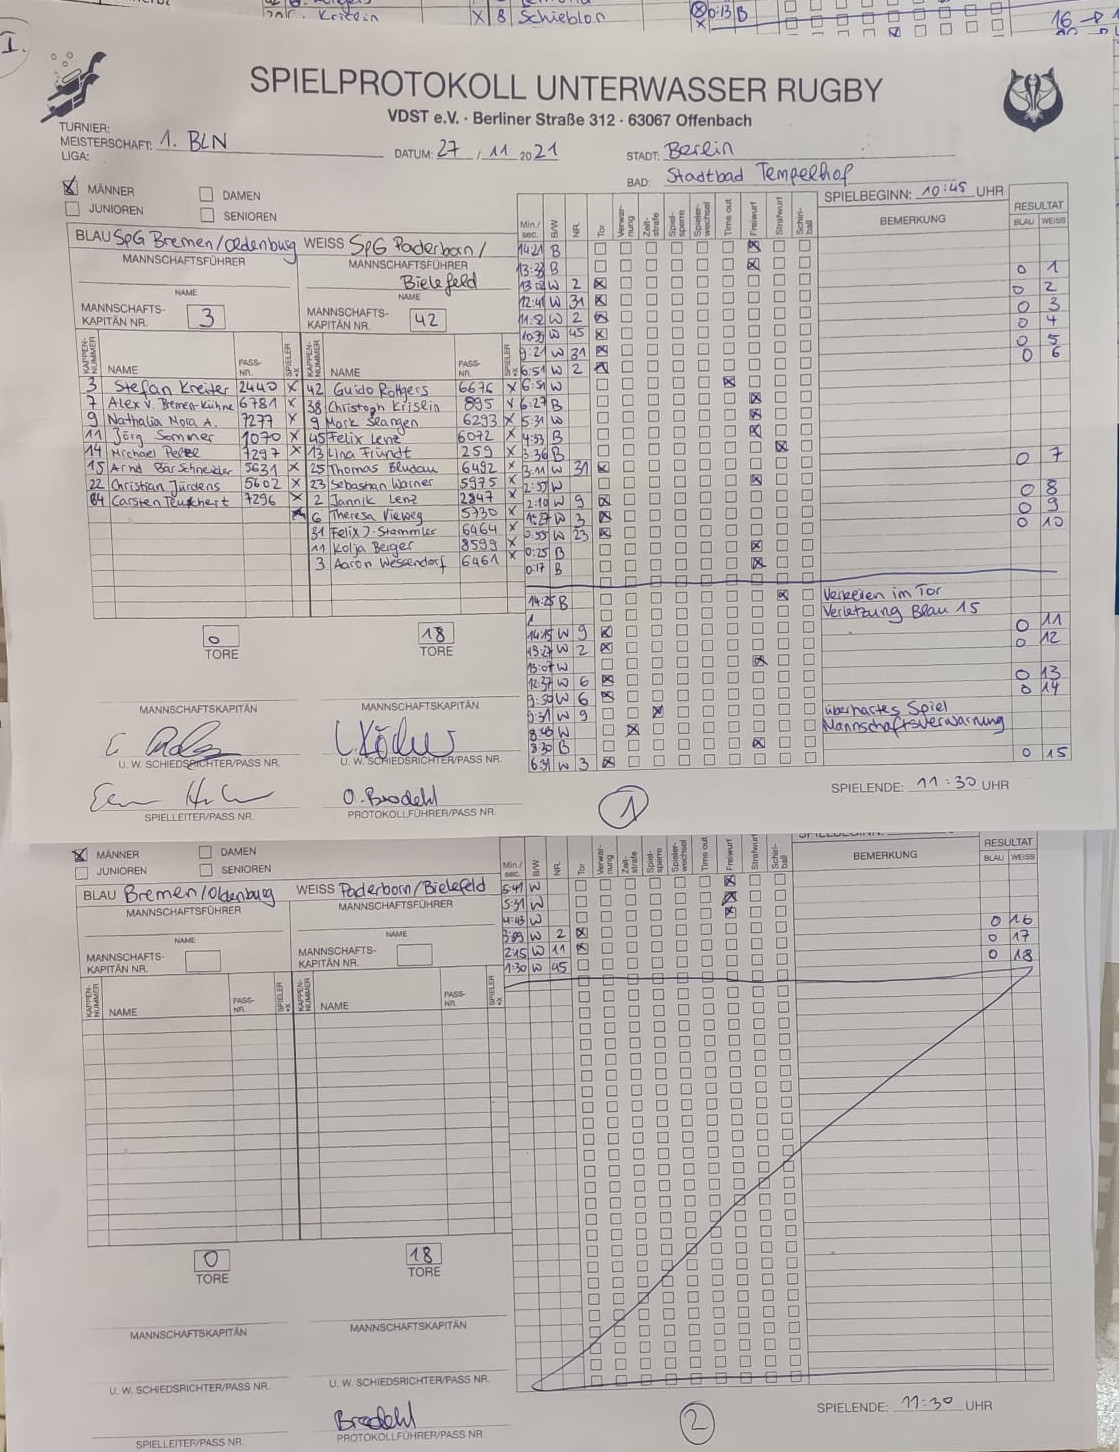 Kristin X 8 Schieblon 0:13 B 16
I.
SPIELPROTOKOLL UNTERWASSER RUGBY
VDST e.V. · Berliner Straße 312 · 63067 Offenbach
TURNIER:
MEISTERSCHAFT: 1. BLN
LIGA:
DATUM: 27 / 11 2021
STADT: Berlin
BAD: Stadtbad Tempelhof
MÄNNER DAMEN
JUNIOREN SENIOREN
SPIELBEGINN: 10:45 UHR
BLAU SpG Bremen/Oldenburg WEISS SpG Paderborn/
Bielefeld
MANNSCHAFTSFÜHRER MANNSCHAFTSFÜHRER
NAME NAME
MANNSCHAFTS-KAPITÄN NR. 3 MANNSCHAFTS-KAPITÄN NR. 42
KAPPEN-NUMMER NAME PASS-NR. SPIELER *X KAPPEN-NUMMER NAME PASS-NR. SPIELER
3 Stefan Kreiter 2440 X 42 Guido Rottgers 6676 X
7 Alex v. Bremen-Kühne 6781 X 38 Christoph Krislin 895 X
9 Nathalia Mora A. 7277 X 9 Mark Slangen 6293 X
11 Jörg Sommer 1070 X 45 Felix Lenz 6072 X
14 Michael 7297 X 13 Lina Fründt 259 X
15 Arnd Bär Schneider 5631 X 25 Thomas Bludau 6492 X
22 Christian Jürdens 5602 X 23 Sebastian Warner 5975 X
84 Carsten Teuschert 7296 X 2 Jannik Lenz 2847 X
6 Theresa Vieweg 5730 X
31 Felix J-Stammler 6464 X
11 Kolja Berger 8599 X
3 Aaron Wessendorf 6461 X
0 TORE 18 TORE
MANNSCHAFTSKAPITÄN MANNSCHAFTSKAPITÄN
U. W. SCHIEDSRICHTER/PASS NR. U. W. SCHIEDSRICHTER/PASS NR.
O. Brodehl
SPIELLEITER/PASS NR. PROTOKOLLFÜHRER/PASS NR.
Min./sec. B/W NR. Tor Verwarnung Zeitstrafe Spielsperre Spielerwechsel Time out Freiwurf Strafwurf Schiriball BEMERKUNG RESULTAT BLAU WEISS
14:21 B X
13:33 B X
13:02 W 2 X 0 1
12:41 W 31 X 0 2
11:52 W 2 X 0 3
10:35 W 45 X 0 4
9:21 W 31 X 0 5
6:51 W 2 X 0 6
6:51 W X
6:27 B X
5:31 W X
4:53 B X
3:36 B X
3:11 W 31 X 0 7
2:57 W X
2:10 W 9 X 0 8
1:27 W 3 X 0 9
0:55 W 23 X 0 10
0:25 B X
0:17 B X
14:25 B X Verkeilen im Tor
1 Verletzung Blau 15
14:15 W 9 X 0 11
13:27 W 2 X 0 12
13:07 W X
12:37 W 6 X 0 13
9:50 W 6 X 0 14
9:31 W 9 X überhartes Spiel
8:40 W X Mannschaftsverwarnung
8:30 B X
6:31 W 3 X 0 15
SPIELENDE: 11:30 UHR
1
MÄNNER DAMEN
JUNIOREN SENIOREN
BLAU Bremen/Oldenburg WEISS Paderborn/Bielefeld
MANNSCHAFTSFÜHRER MANNSCHAFTSFÜHRER
NAME NAME
MANNSCHAFTS-KAPITÄN NR. MANNSCHAFTS-KAPITÄN NR.
KAPPEN-NUMMER NAME PASS-NR. SPIELER *X KAPPEN-NUMMER NAME PASS-NR. SPIELER *X
Min./sec. B/W NR. Tor Verwarnung Zeitstrafe Spielsperre Spielerwechsel Time out Freiwurf Strafwurf Schiriball BEMERKUNG RESULTAT BLAU WEISS
5:41 W X
5:31 W X
4:43 W X
3:09 W 2 X 0 16
2:15 W 11 X 0 17
1:30 W 45 0 18
0 TORE 18 TORE
MANNSCHAFTSKAPITÄN MANNSCHAFTSKAPITÄN
U. W. SCHIEDSRICHTER/PASS NR. U. W. SCHIEDSRICHTER/PASS NR.
Brodehl
SPIELLEITER/PASS NR. PROTOKOLLFÜHRER/PASS NR.
2
SPIELENDE: 11:30 UHR